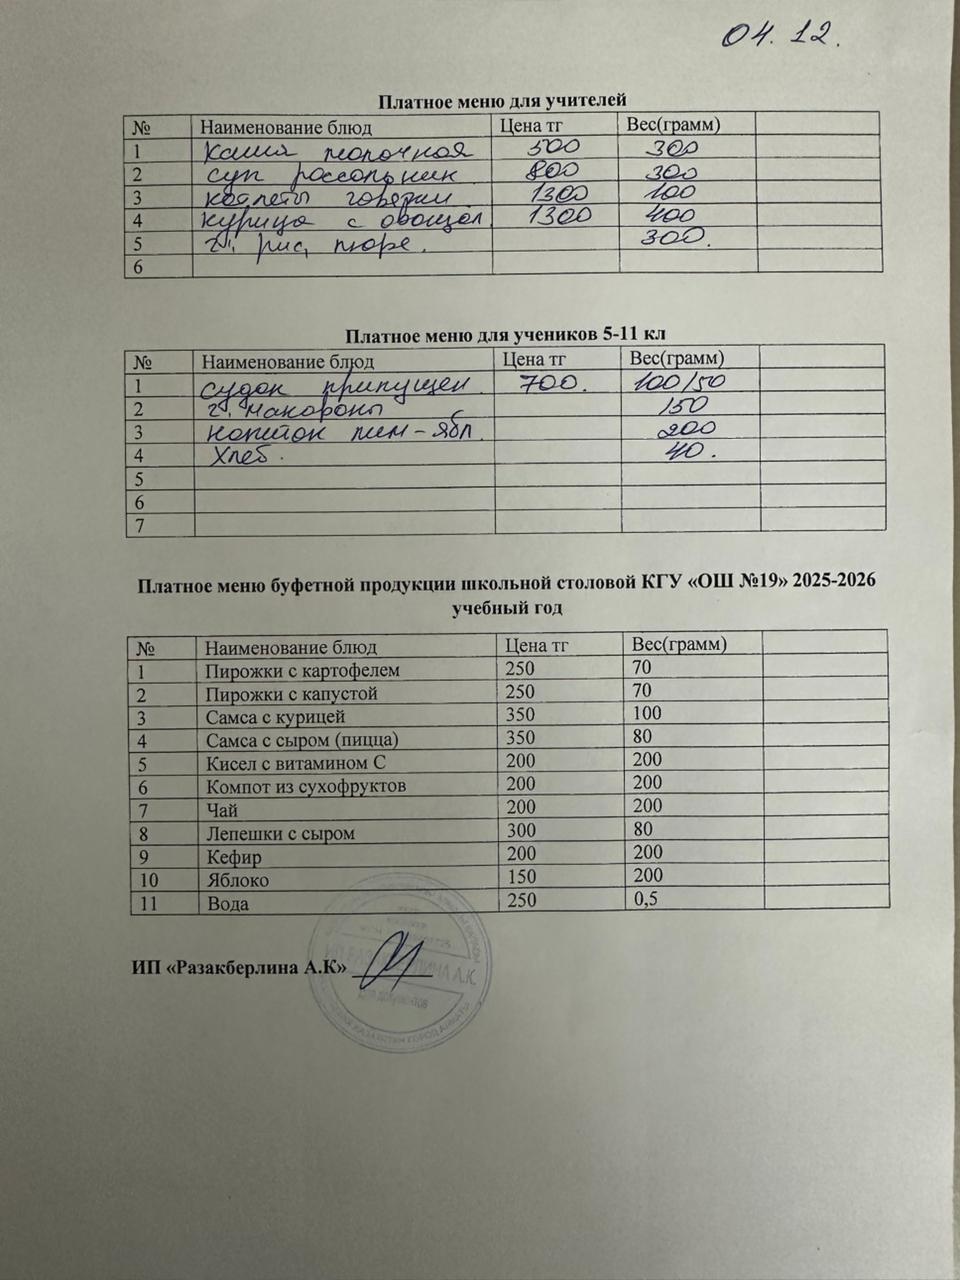 04.12.
Платное меню для учителей
№ Наименование блюд Цена тг Вес(грамм)
1 Каша молочная 500 300
2 суп россольник 800 300
3 котлеты говяжи 1300 100
4 курица с овощам 1300 400
5 г. рис, пюре. 300.
6
Платное меню для учеников 5-11 кл
№ Наименование блюд Цена тг Вес(грамм)
1 судак припущен 700. 100/50
2 г. макароны 150
3 напиток лим-ябл 200
4 Хлеб. 40.
5
6
7
Платное меню буфетной продукции школьной столовой КГУ «ОШ №19» 2025-2026
учебный год
№ Наименование блюд Цена тг Вес(грамм)
1 Пирожки с картофелем 250 70
2 Пирожки с капустой 250 70
3 Самса с курицей 350 100
4 Самса с сыром (пицца) 350 80
5 Кисел с витамином С 200 200
6 Компот из сухофруктов 200 200
7 Чай 200 200
8 Лепешки с сыром 300 80
9 Кефир 200 200
10 Яблоко 150 200
11 Вода 250 0,5
ИП «Разакберлина А.К»
Для документов